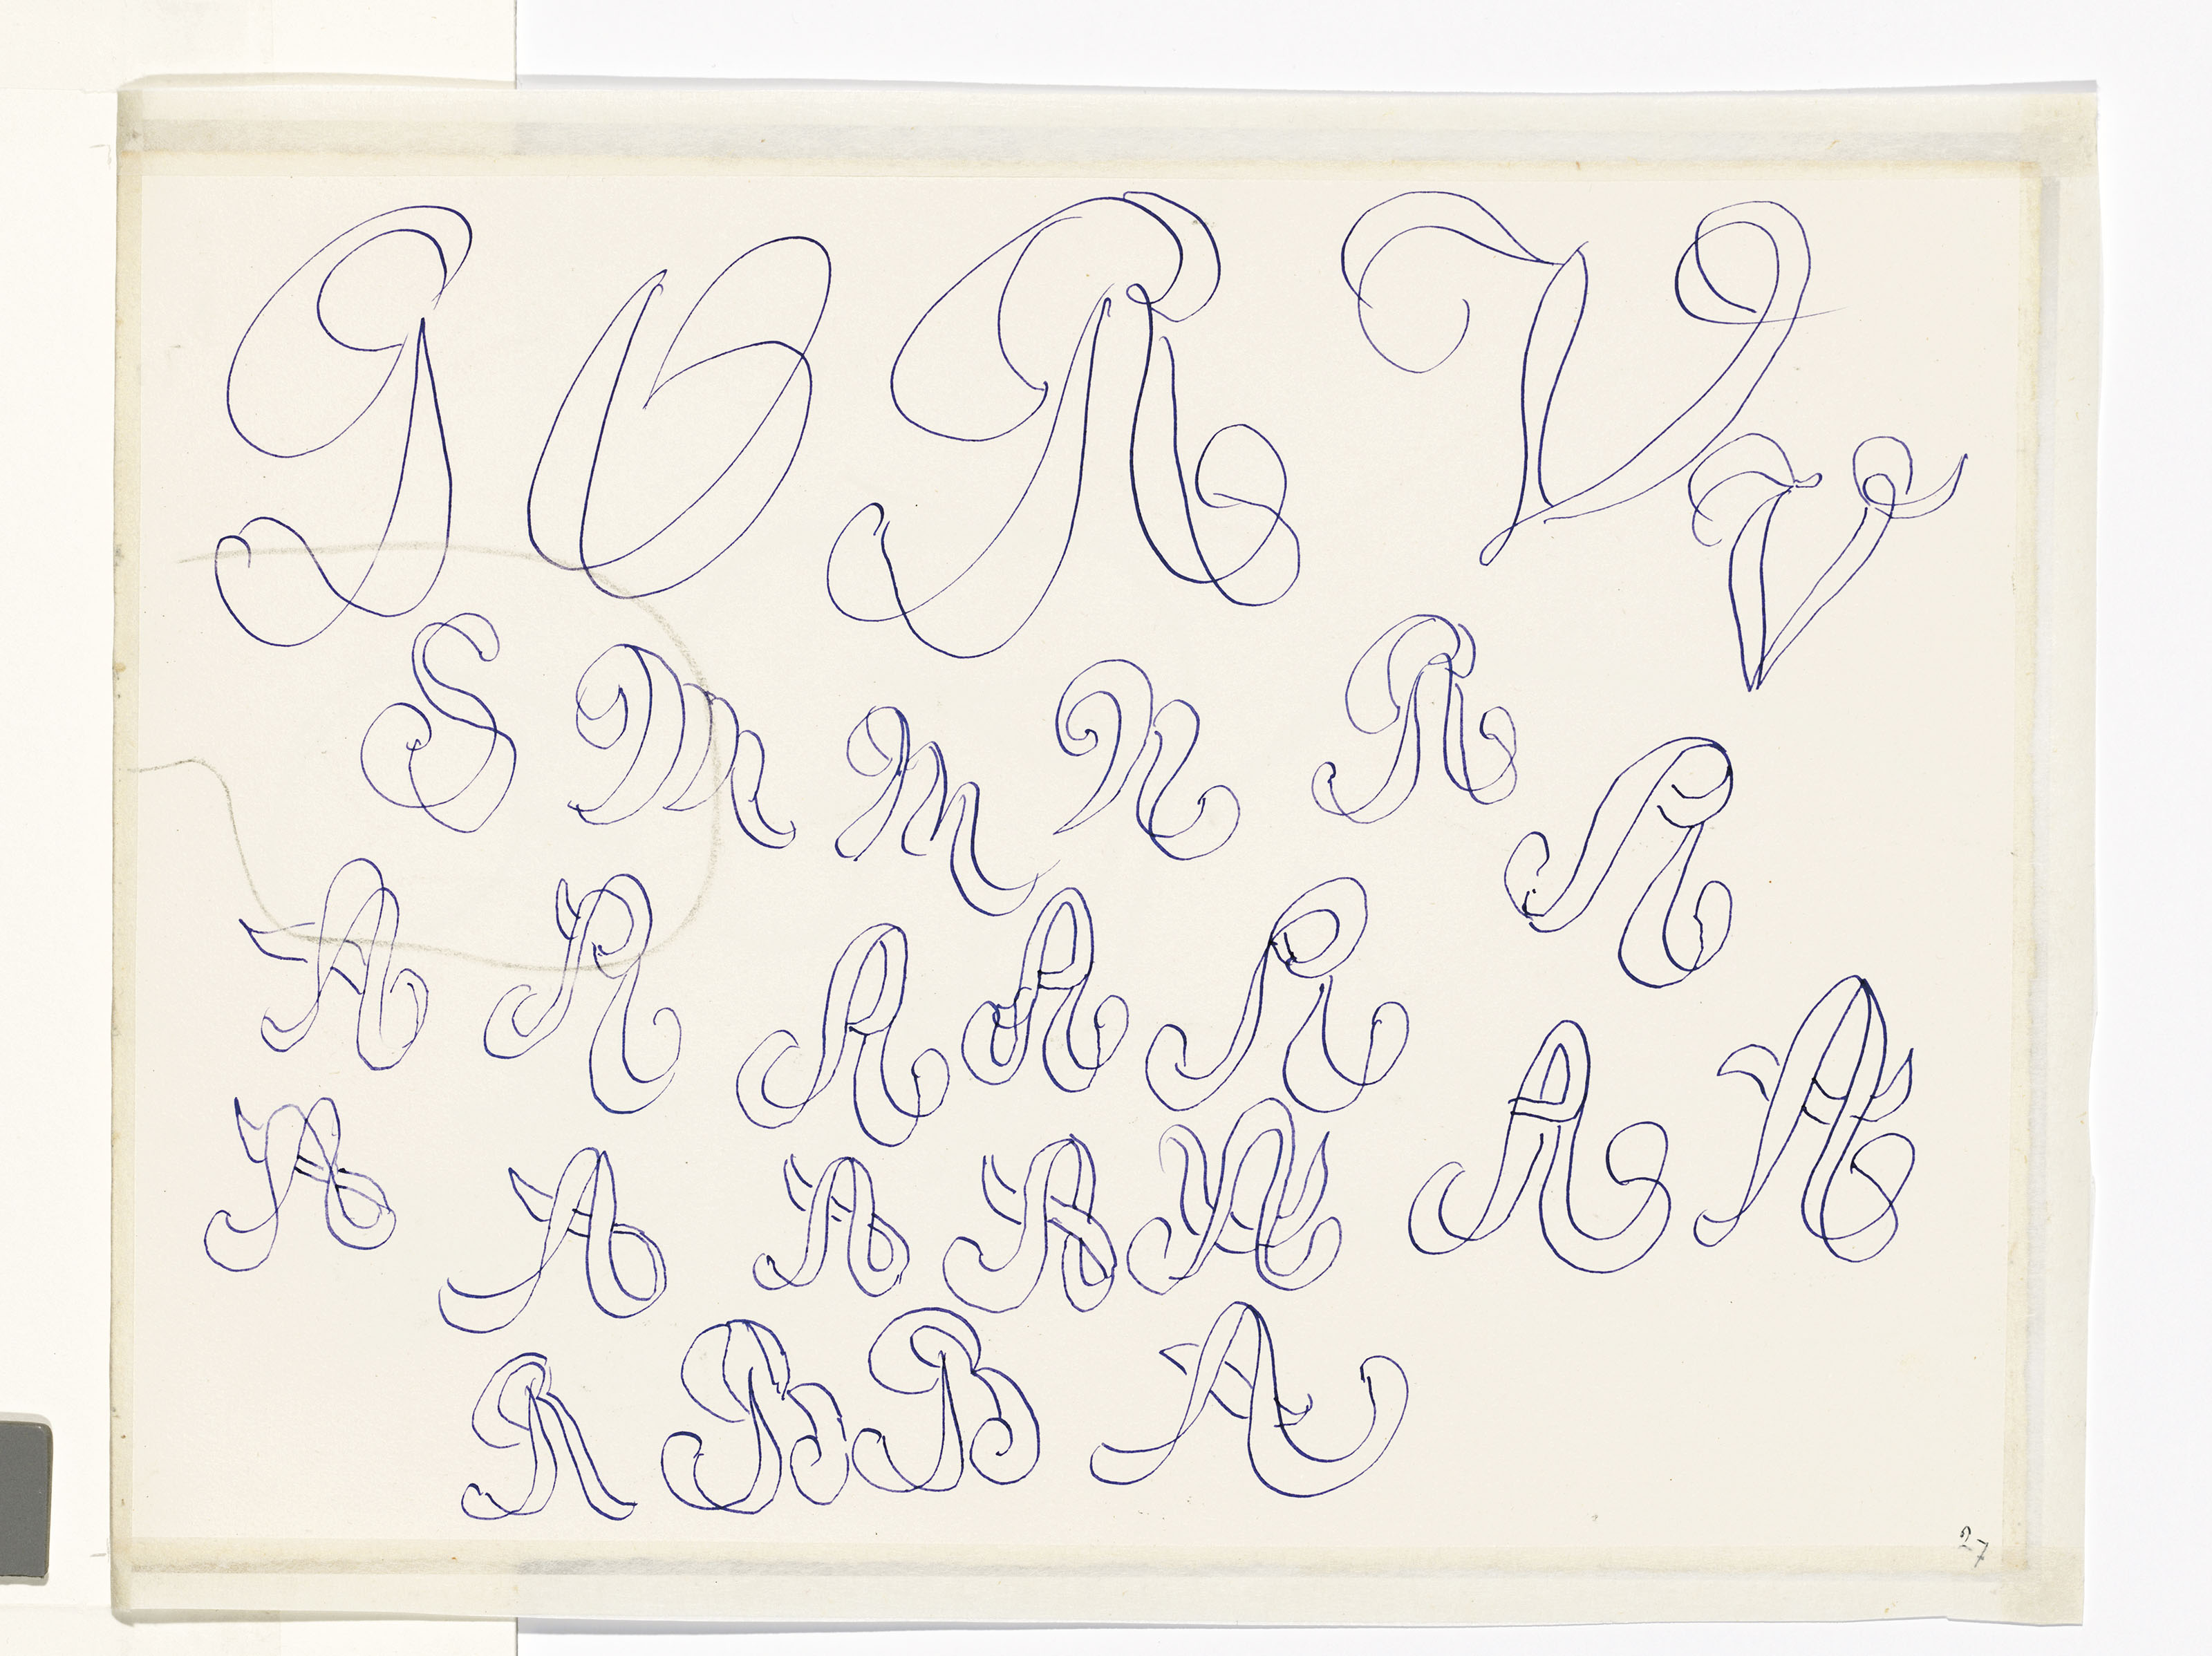 G O R V
V
S M M N R
R
A R R A R
A A
A A A A A
R B B A
27